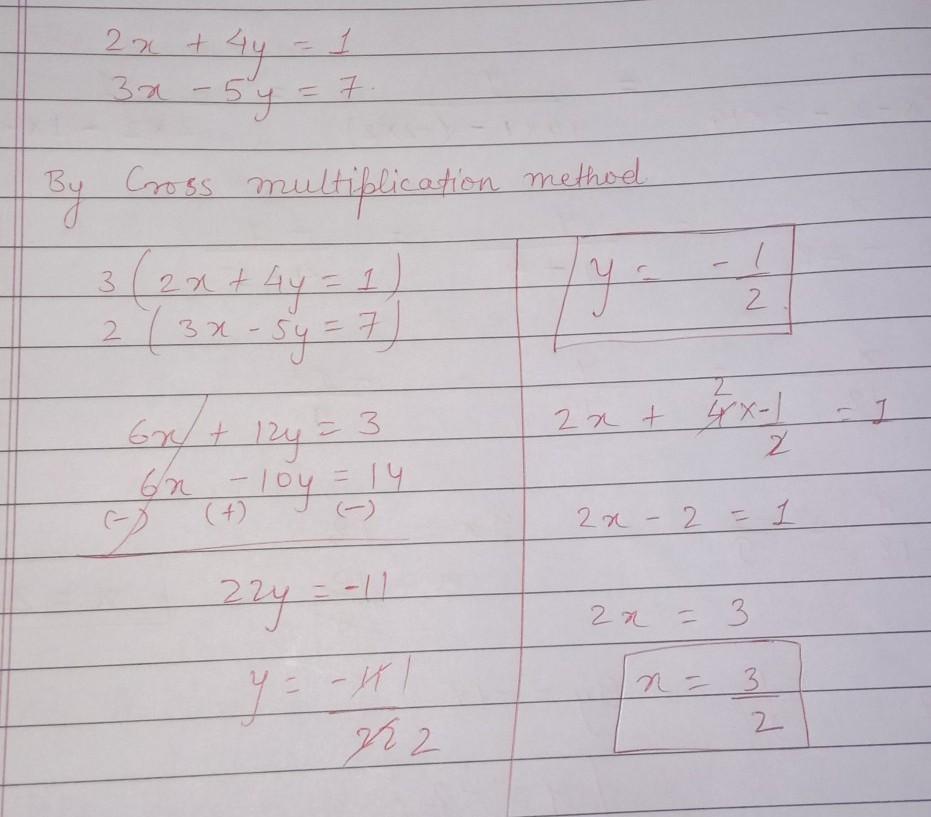 2x + 4y = 1
3x - 5y = 7.
By Cross multiplication method
3 (2x + 4y = 1)
2 (3x - 5y = 7)
6x + 12y = 3
6x - 10y = 14
(-) (+) (-)
22y = -11
y = -11 1
22 2
y = - 1
2
2
2x + 4x-1 = 1
2
2x - 2 = 1
2x = 3
x = 3
2